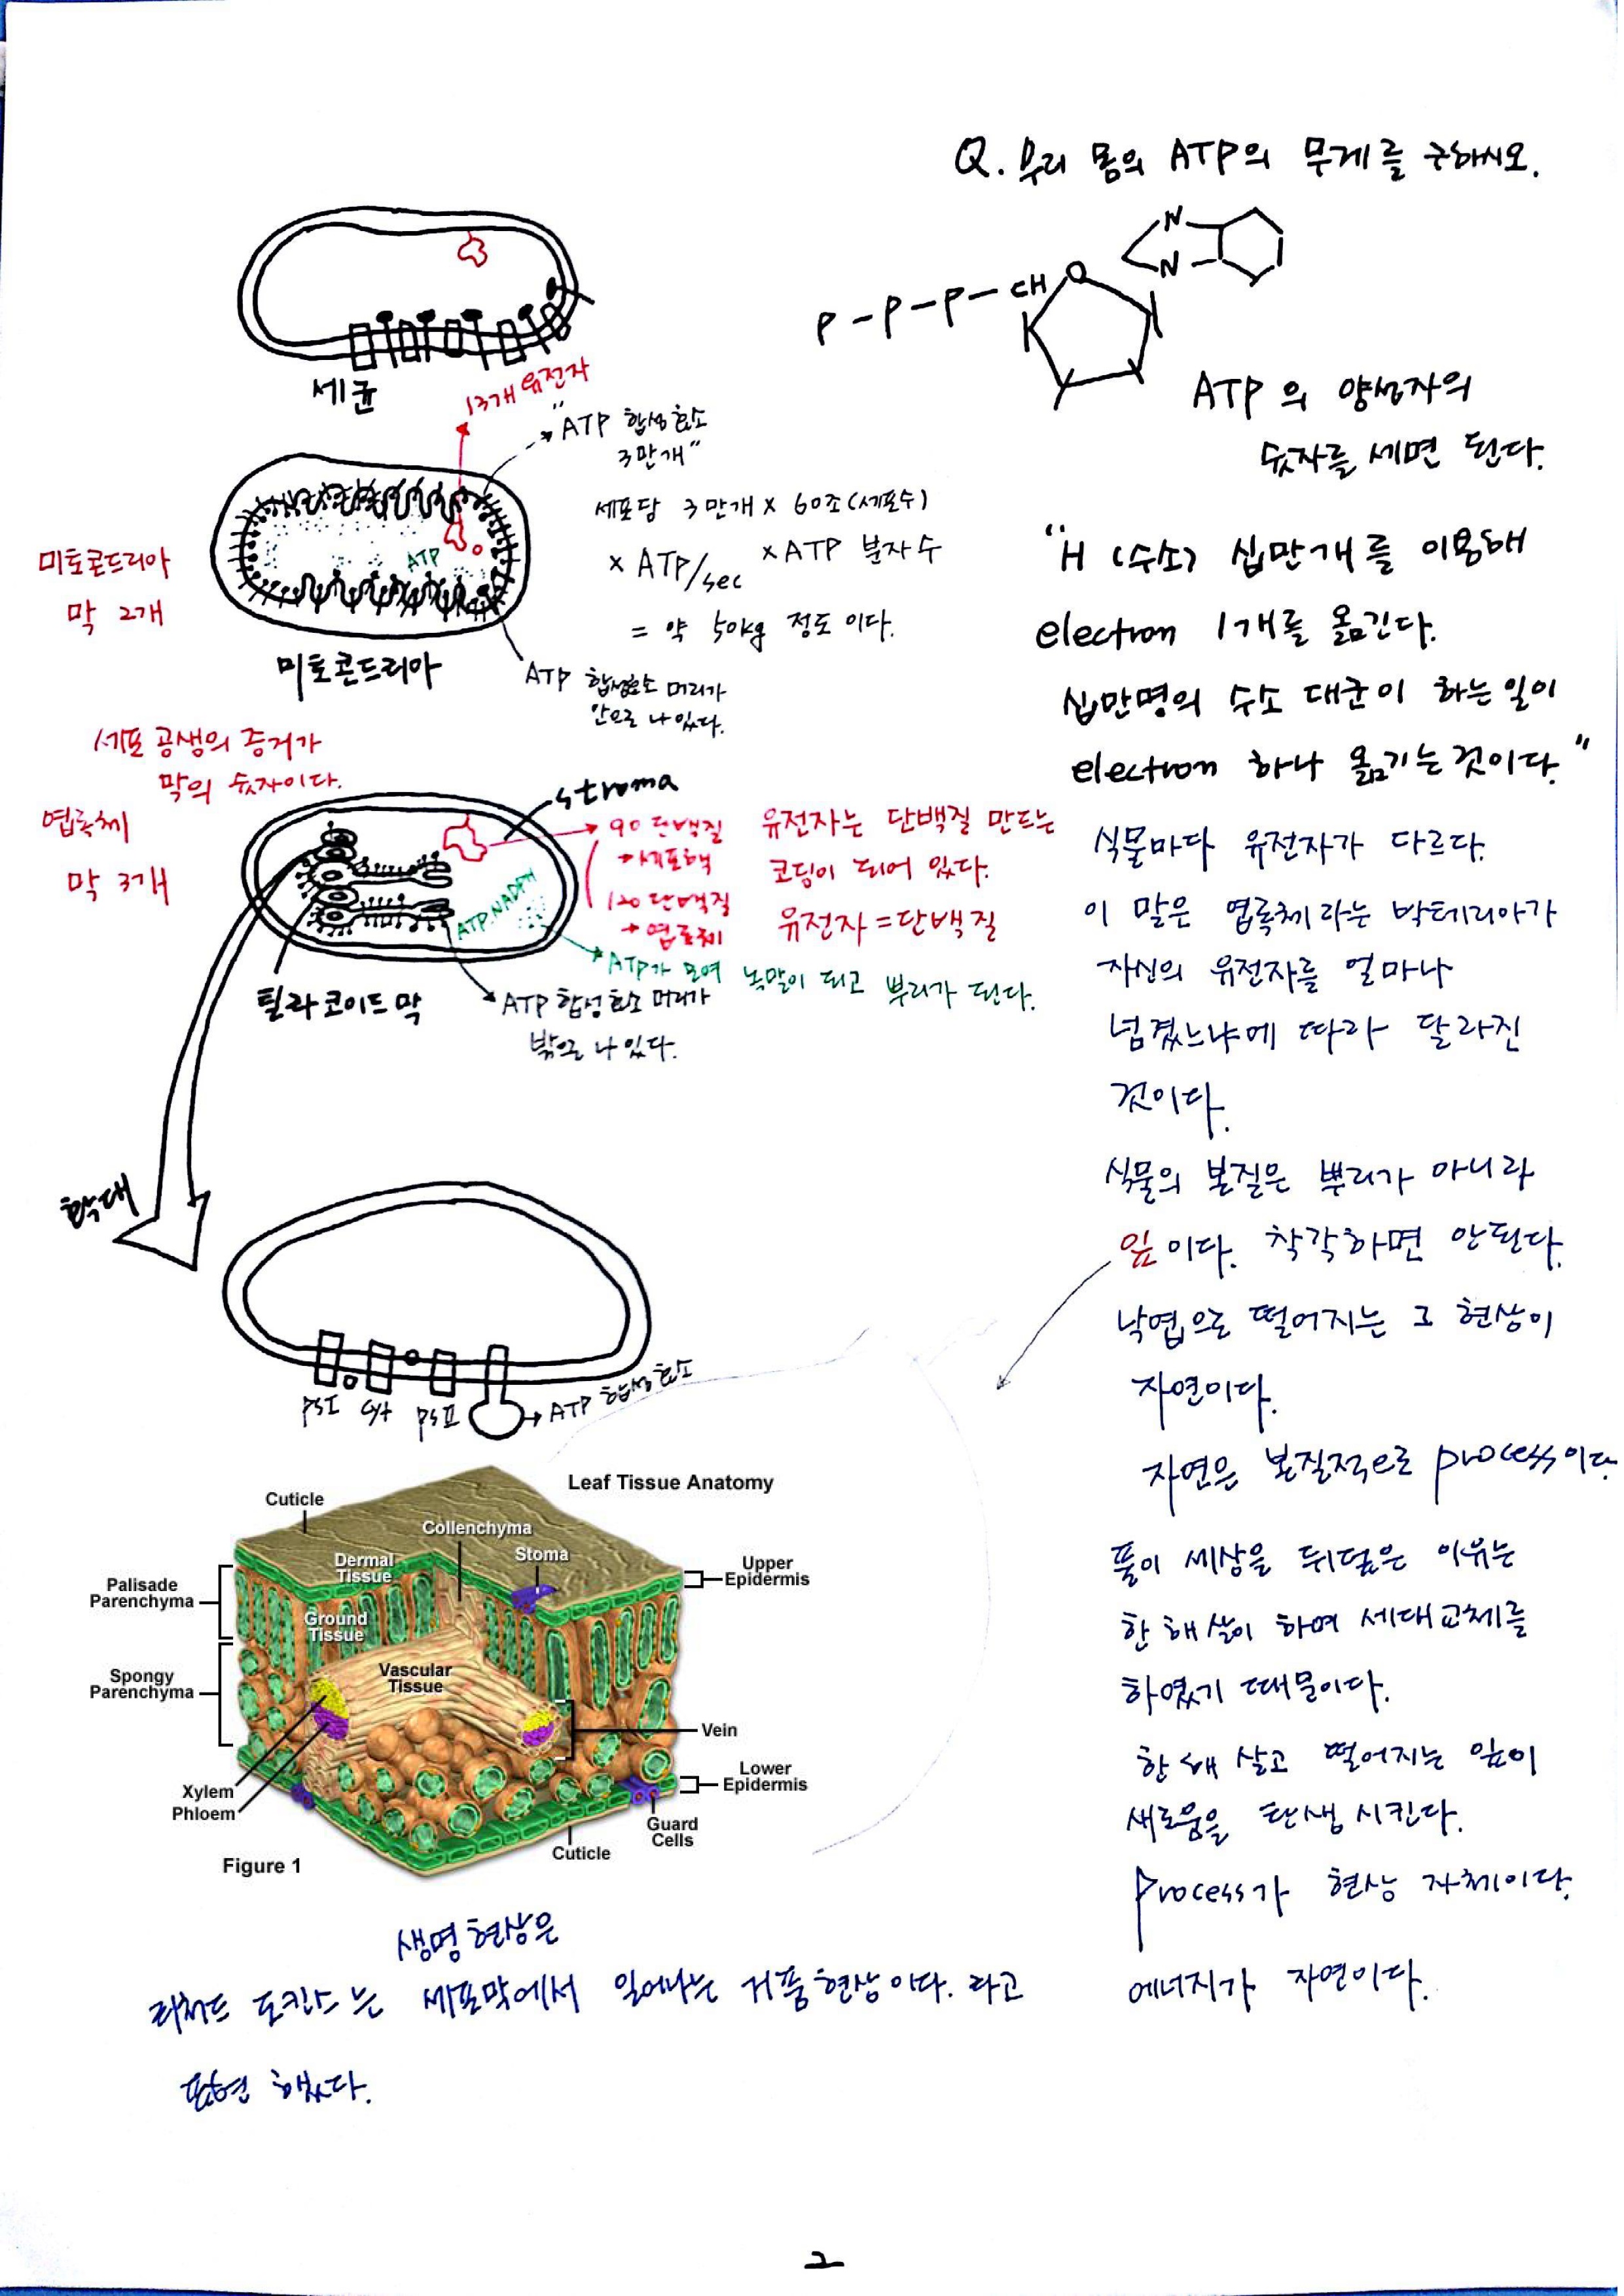 Q. 우리 몸의 ATP의 무게를 구하시오.
P-P-P-CH
O
N
N
ATP의 양성자의
숫자를 세면 된다.
세균
13개 유전자
"ATP 합성효소
3만개"
세포당 3만개 x 60조(세포수)
x ATP/sec x ATP 분자수
= 약 50kg 정도이다.
ATP
미토콘드리아
막 2개
미토콘드리아
ATP 합성효소 머리가
안으로 나 있다.
"H (수소) 십만개를 이용해
electron 1개를 옮긴다.
십만명의 수소 대군이 하는 일이
electron 하나 옮기는 것이다."
세포 공생의 증거가
막의 숫자이다.
엽록체
막 3개
stroma
90 단백질
→세포핵
120 단백질
→엽록체
유전자는 단백질 만드는
코딩이 되어 있다.
유전자=단백질
ATP.NADPH
ATP가 모여 녹말이 되고 뿌리가 된다.
틸라코이드 막
ATP 합성효소 머리가
밖으로 나 있다.
식물마다 유전자가 다르다.
이 말은 엽록체라는 박테리아가
자신의 유전자를 얼마나
넘겼느냐에 따라 달라진
것이다.
식물의 본질은 뿌리가 아니라
잎이다. 착각하면 안된다.
낙엽으로 떨어지는 그 현상이
자연이다.
자연은 본질적으로 process이다.
풀이 세상을 뒤덮은 이유는
한해살이 하며 세대교체를
하였기 때문이다.
한해 살고 떨어지는 잎이
새로움을 탄생시킨다.
Process가 현상 자체이다.
에너지가 자연이다.
확대
PSI Cyt PSII
ATP 합성효소
Leaf Tissue Anatomy
Cuticle
Collenchyma
Stoma
Dermal
Tissue
Upper
Epidermis
Palisade
Parenchyma
Ground
Tissue
Vascular
Tissue
Spongy
Parenchyma
Vein
Lower
Epidermis
Xylem
Phloem
Guard
Cells
Cuticle
Figure 1
생명현상은
리처드 도킨스는 세포막에서 일어나는 거품현상이다. 라고
표현 했다.
2